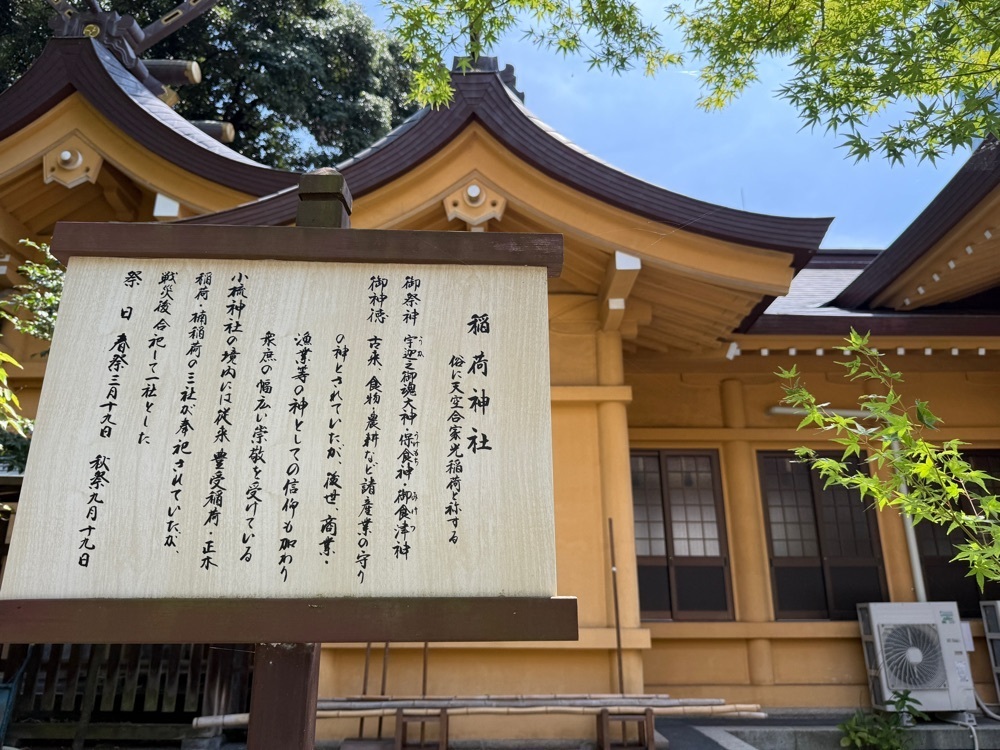 稲荷神社
俗に天空合家光稲荷と祢する
御祭神 宇迦之御魂大神・保食神・御食津神
うか
うけもち
みけつ
御神徳 古来、食物・農耕など諸産業の守り
の神とされていたが、後世、商業・
漁業等の神としての信仰も加わり
衆庶の幅広い崇敬を受けている
小梳神社の境内には従来 豊受稲荷・正木
稲荷・楠稲荷の三社が奉祀されていたが、
戦災後合祀して一社とした
祭日 春祭三月十九日 秋祭九月十九日